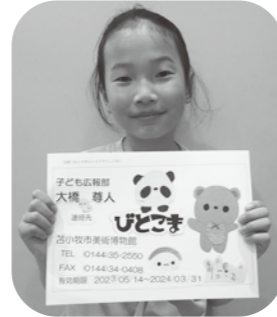 子ども広報部
大橋 尊人
連絡先
びとこま
苫小牧市美術博物館
TEL 0144-35-2550
FAX 0144-34-0408
有効期限 2023/05/14~2024/03/31